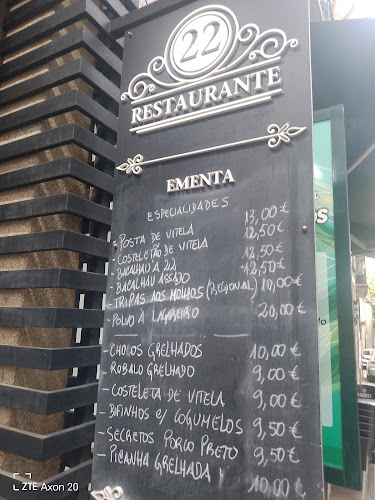 22
RESTAURANTE
EMENTA
ESPECIALIDADES
- POSTA DE VITELA 13,00€
- COSTELETÃO DE VITELA 12,50€
- BACALHAU À 22 12,50€
- BACALHAU ASSADO 12,50€
- TRIPAS AOS MOLHOS (REGIONAL) 10,00€
- POLVO À LAGAREIRO 20,00€
- CHOCOS GRELHADOS 10,00€
- ROBALO GRELHADO 9,00€
- COSTELETA DE VITELA 9,00€
- BIFINHOS C/ COGUMELOS 9,50€
- SECRETOS PORCO PRETO 9,50€
- PICANHA GRELHADA 10,00€
ZTE Axon 20